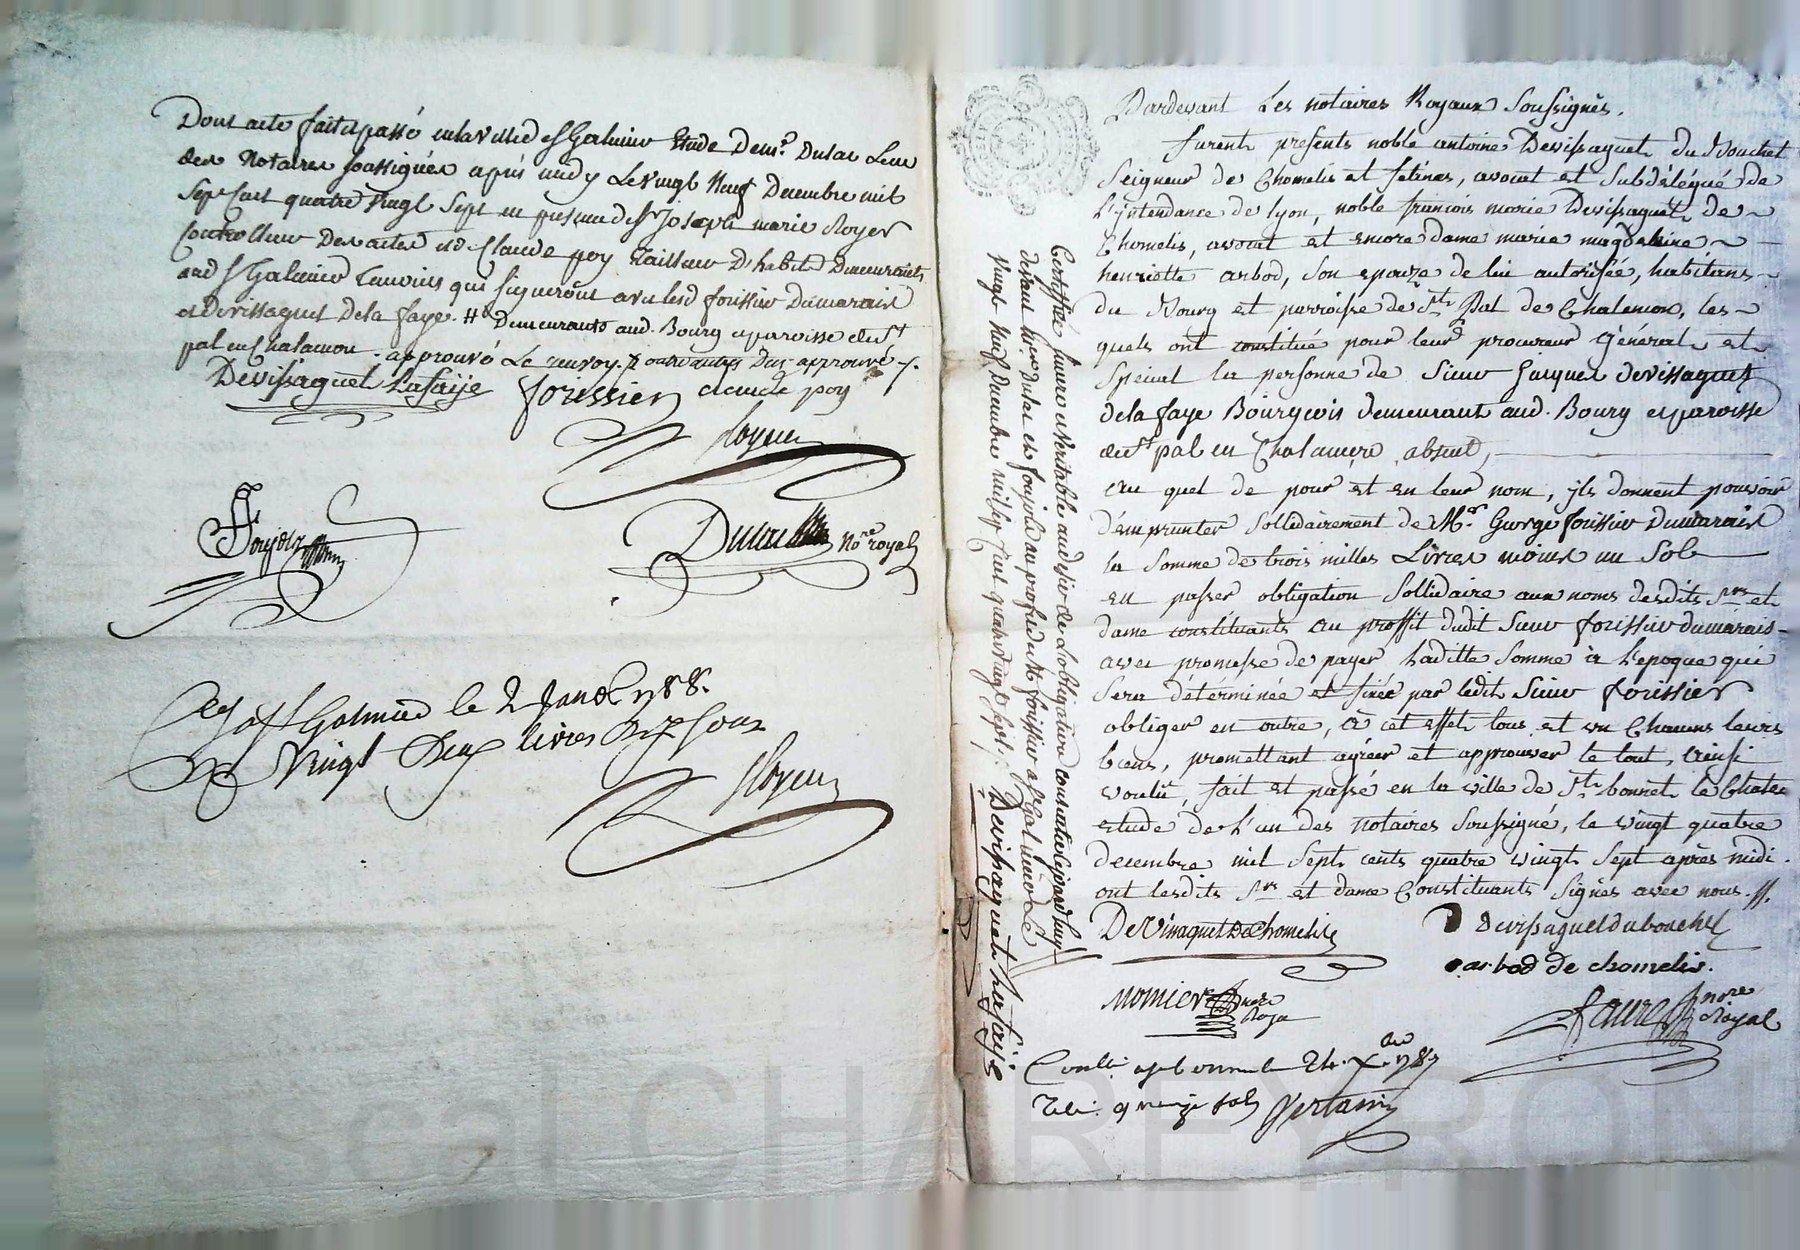 Dont acte fait et passé en la ville de St Galmier Etude de me. Dulac l'un
des Notaires soussignés après midy Le vingt Neuf Decembre mil
Sept Cent quatre vingt Sept en presence de Sr Joseph marie Royer
Controlleur des actes et Claude poy Tailleur D'habits Demeurants
aud St Galmier Temoins qui signeront avec lesd forissier Dumarais
et Devissaguet de la faye. # Demeurants aud. Bourg et paroisse de St
pal en Chalamon. approuvé Le renvoy.
Devissaguet Lafaije forissier claude poy
Royer
Foujols
Dulac Nore. royal
a St Galmier le 2 Janer 1788.
Vingt Deux livres Dix Sous
Royer
Certiffié sincere et Veritable au desir de L'obligation
devant me. Dulac et foujols au profit de Mr forissier a St Galmier Le
Vingt Neuf Decembre mil sept Cent quatre vingt Sept.
Devissaguet Lafaije
Pardevant Les notaires Royaux Soussignés.
furent présents noble antoine Devissaguet du Bouchet
Seigneur de Chomelis et fétines, avocat et Subdélégué de
L'intendance de lyon, noble francois marie Devissaguet de
Chomelis, avocat et encore dame marie magdeleine
henriette arbod, son epouze de lui autorisée, habitans
du Bourg et parroisse de St. Pal de Chalencon, les
quels ont constitué pour leur procureur Général et
Spécial la personne de Sieur Jacques devissaguet
de la faye Bourgeois demeurant aud. Bourg et paroisse
de St pal en Chalancon absent,
au quel de pour et en leur nom, ils donnent pouvoir
d'emprunter sollidairement de Mr. George forissier Dumarais
la somme de trois milles Livres moins un Sol
en passer obligation Sollidaire aux noms desdits Srs et
dame constituants au proffit dudit Sieur forissier dumarais
avec promesse de payer laditte somme à l'epoque qui
sera déterminée et fixée par ledit Sieur forissier
obliger en outre, à cet effet tous et un Chacuns leurs
biens, promettant agréer et approuver le tout, ainsi
voulû, fait et passé en la ville de St. bonnet le Chateau
étude de l'un des notaires Soussigné, le vingt quatre
decembre mil sept cents quatre vingt sept après midi
ont lesdits Srs et dame Constituants signés avec nous.
Devissaguet De Chomelis Devissaguet du bouchet
arbod de chomelis.
Momier nore Roya
faure nore Royal
Conllé a St bonnet le 24. Xbre 1787
Reçu quinze sols Vertamy
Pascal CHAREYRON